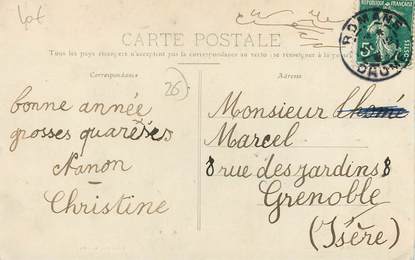 lot
CARTE POSTALE
Tous les pays étrangers n'acceptent pas la correspondance au verso (se renseigner à la poste)
Correspondance
Adresse
26
RÉPUBLIQUE FRANÇAISE
5
POSTES
ROMANS
bonne année
grosses
Nanon
Christine
Monsieur
Marcel
8 rue des jardins 8
Grenoble
(Isère)